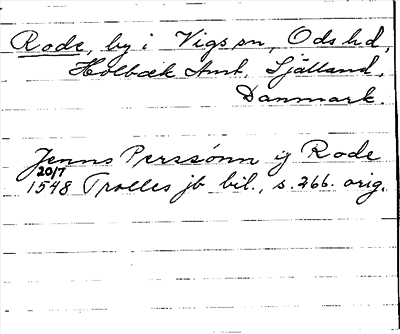 Rode, by i Vigs sn, Ods hd,
Holbæk Amt, Sjælland,
Danmark.
Jenns Perssónn ij Rode
20/7
1548 Trolles jb bil., s. 266. orig.